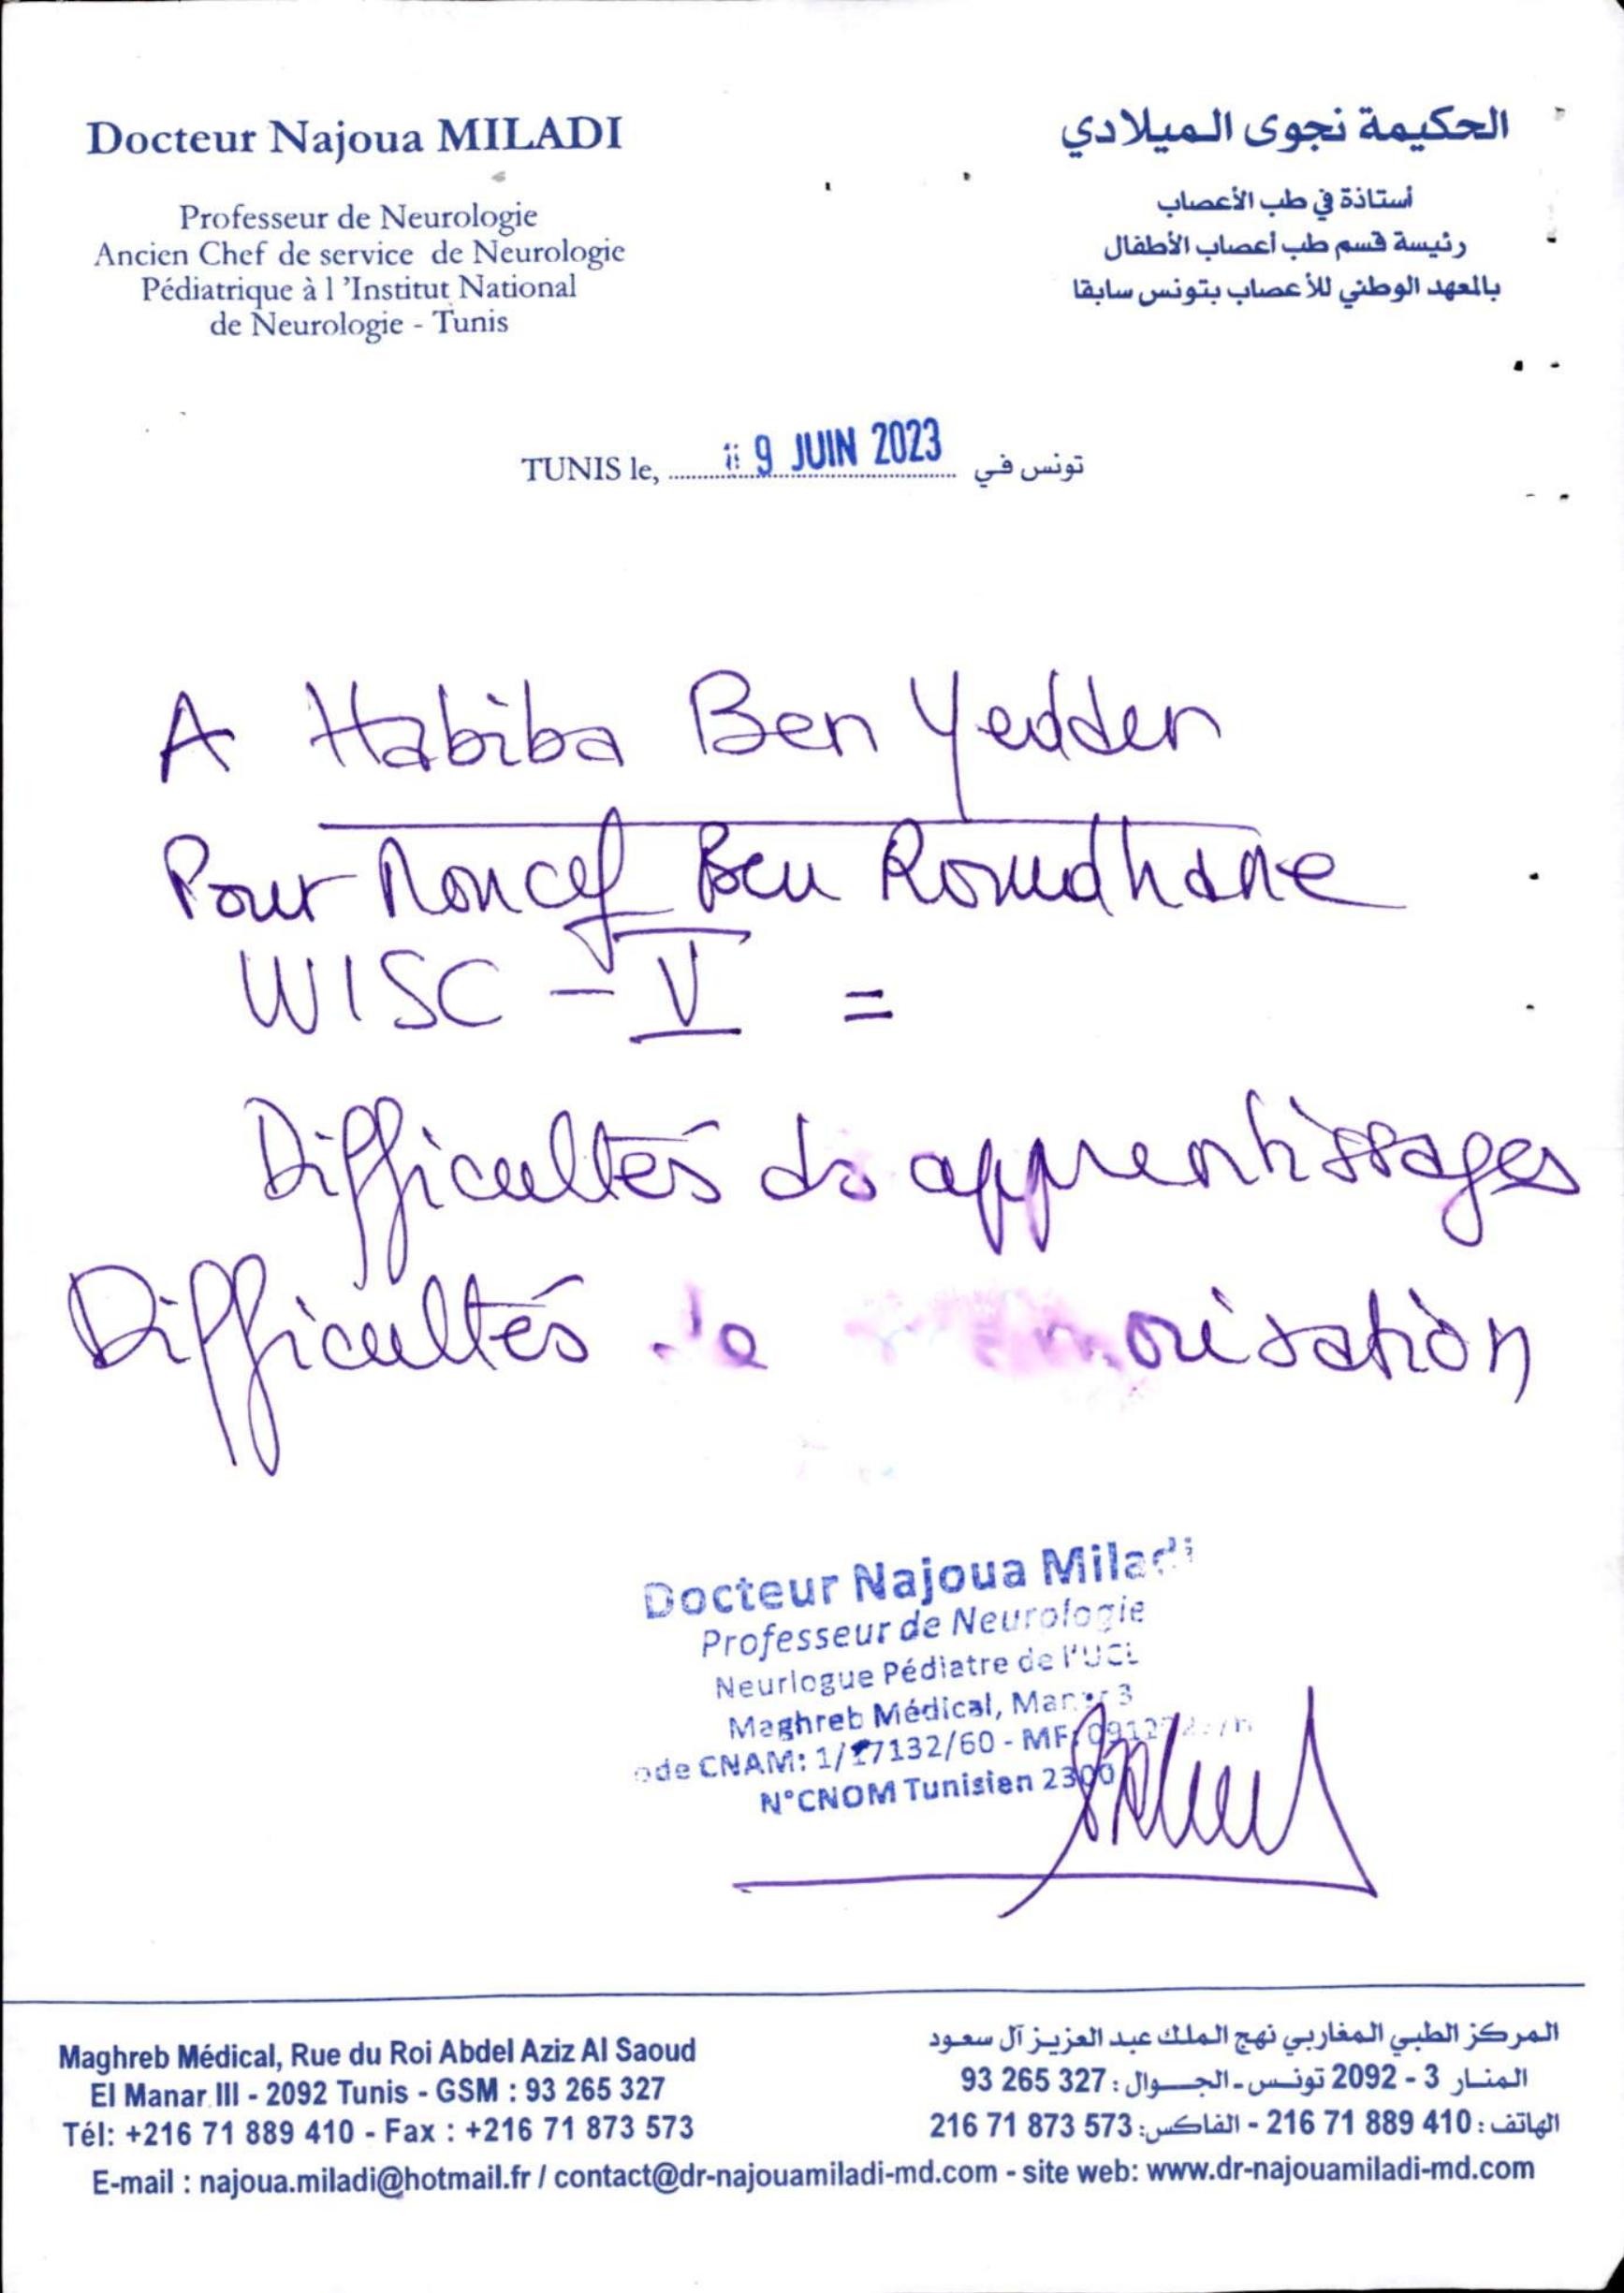 Docteur Najoua MILADI
Professeur de Neurologie
Ancien Chef de service de Neurologie
Pédiatrique à l 'Institut National
de Neurologie - Tunis
الحكيمة نجوى الميلادي
أستاذة في طب الأعصاب
رئيسة قسم طب أعصاب الأطفال
بالمعهد الوطني للأعصاب بتونس سابقا
TUNIS le, 9 JUIN 2023 تونس في
A Habiba Ben Yedder
Pour Moncef Ben Romdhane
WISC - V =
Difficultés ds apprentissages
Difficultés
Docteur Najoua Miladi
Professeur de Neurologie
Neurlogue Pédiatre de l'UCL
Maghreb Médical, Manar 3
ode CNAM: 1/17132/60 - MF:
N°CNOM Tunisien 2300
Maghreb Médical, Rue du Roi Abdel Aziz Al Saoud
El Manar III - 2092 Tunis - GSM : 93 265 327
Tél: +216 71 889 410 - Fax : +216 71 873 573
المركز الطبي المغاربي نهج الملك عبد العزيز آل سعود
المنار 3 - 2092 تونس - الجوال : 327 265 93
الهاتف : 410 889 71 216 - الفاكس: 573 873 71 216
E-mail : najoua.miladi@hotmail.fr / contact@dr-najouamiladi-md.com - site web: www.dr-najouamiladi-md.com